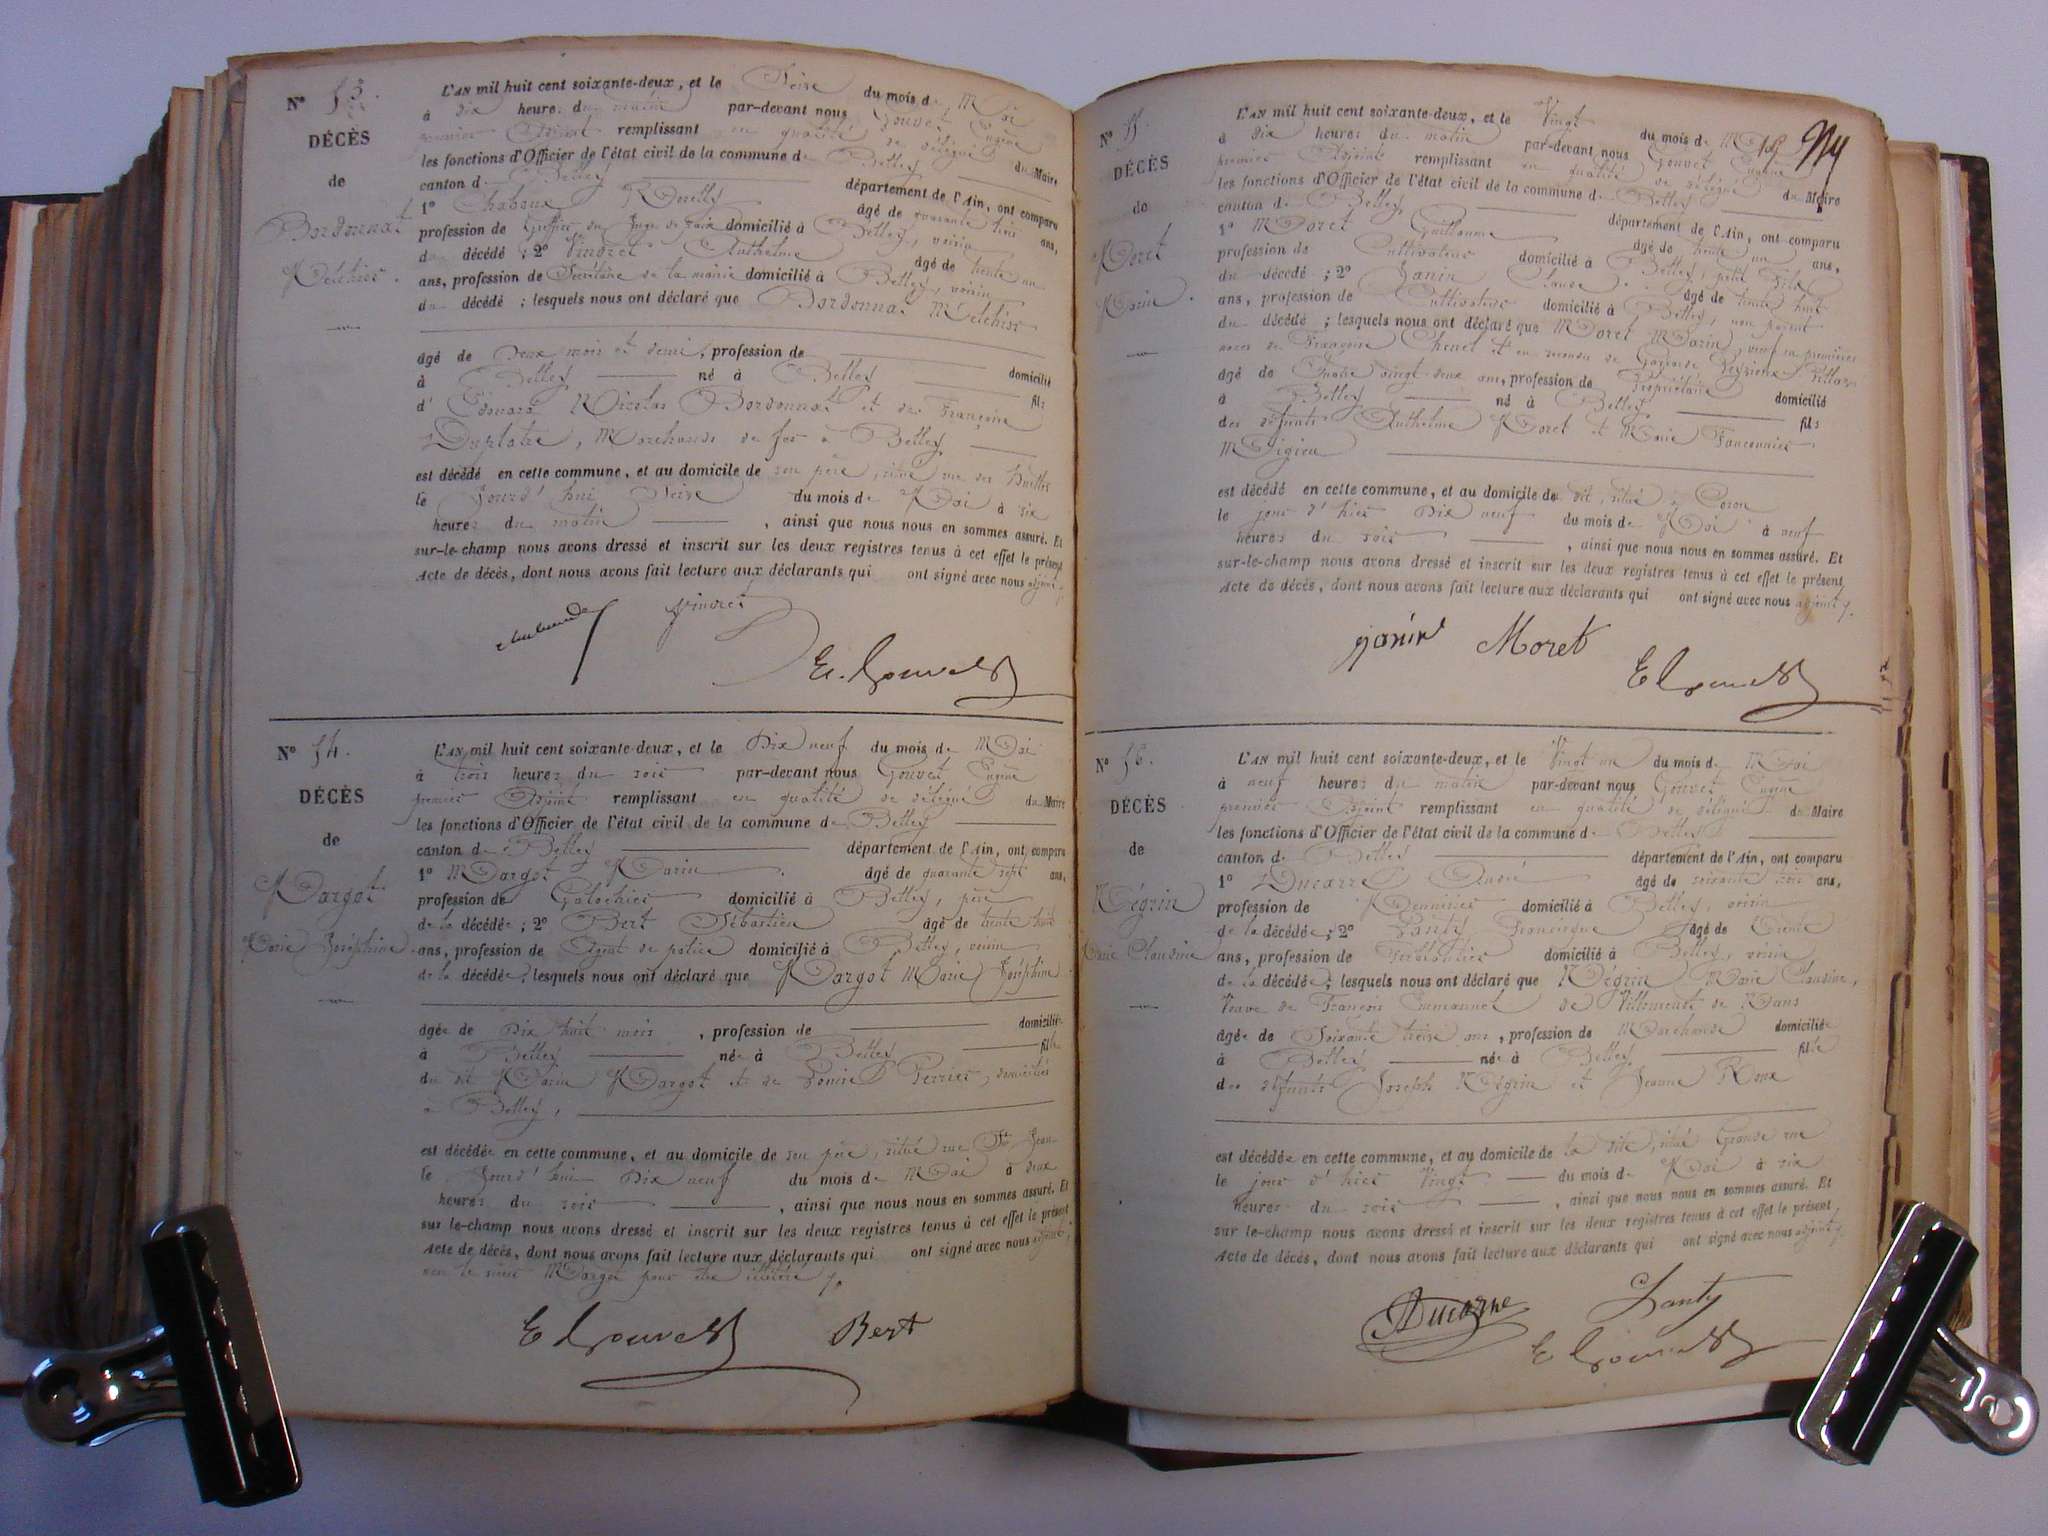 N° 53.
DÉCÈS
de
Bordonnat
Melchior.
L'AN mil huit cent soixante-deux, et le Seize du mois de Mai
à dix heures du matin par-devant nous Gouvet Eugène
premier Adjoint remplissant en qualité de délégué du Maire
les fonctions d'Officier de l'état civil de la commune de Belley
canton de Belley département de l'Ain, ont comparu
1° âgé de soixante trois ans,
profession de Greffier du Juge de paix domicilié à Belley, voisin
du décédé ; 2° Vindret Anthelme âgé de trente un
ans, profession de Secrétaire de la mairie domicilié à Belley, voisin
du décédé ; lesquels nous ont déclaré que Bordonnat Melchior
âgé de Deux mois et demi, profession de domicilié
à Belley né à Belley fils
d' Édouard Nicolas Bordonnat et de Françoise
Duplatre, Marchands de fer à Belley
est décédé en cette commune, et au domicile de son père, situé rue des
le Jourd'hui Seize du mois de Mai à six
heures du matin , ainsi que nous nous en sommes assuré. Et
sur-le-champ nous avons dressé et inscrit sur les deux registres tenus à cet effet le présent
Acte de décès, dont nous avons fait lecture aux déclarants qui ont signé avec nous adjoint
Vindret
E. Gouvet
N° 54.
DÉCÈS
de
Margot
Marie Joséphine
L'AN mil huit cent soixante-deux, et le Dix neuf du mois de Mai
à trois heures du soir par-devant nous Gouvet Eugène
premier Adjoint remplissant en qualité de délégué du Maire
les fonctions d'Officier de l'état civil de la commune de Belley
canton de Belley département de l'Ain, ont comparu
1° Margot Marin âgé de quarante sept ans,
profession de Galochier domicilié à Belley, père
de la décédée ; 2° Bert Sébastien âgé de trente huit
ans, profession de Agent de police domicilié à Belley, voisin
de la décédée lesquels nous ont déclaré que Margot Marie Joséphine
âgée de Dix huit mois , profession de domiciliée
à Belley née à Belley fille
du dit Marin Margot et de Louise Perrier, domiciliés
à Belley,
est décédée en cette commune, et au domicile de son père, situé rue St Jean
le Jourd'hui Dix neuf du mois de Mai à deux
heures du soir , ainsi que nous nous en sommes assuré. Et
sur le-champ nous avons dressé et inscrit sur les deux registres tenus à cet effet le présent
Acte de décès, dont nous avons fait lecture aux déclarants qui ont signé avec nous adjoint,
non le sieur Margot pour être illitéré
E Gouvet Bert
N° 55.
DÉCÈS
de
Moret
Marin.
L'AN mil huit cent soixante-deux, et le Vingt du mois de Mai
à dix heures du matin par-devant nous Gouvet Eugène
premier Adjoint remplissant en qualité de délégué du Maire
les fonctions d'Officier de l'état civil de la commune de Belley
canton de Belley département de l'Ain, ont comparu
1° Moret Guillaume âgé de trente un ans,
profession de Cultivateur domicilié à Belley, petit Fils
du décédé ; 2° Janin Claude âgé de trente huit
ans, profession de Cultivateur domicilié à Belley, non parent
du décédé ; lesquels nous ont déclaré que Moret Marin, veuf en premières
noces de Françoise Chenet et en secondes de
âgé de Quatre vingt deux ans, profession de Propriétaire domicilié
à Belley né à Belley fils
des défunts Anthelme Moret et Marie Fauconnier
Migieu
est décédé en cette commune, et au domicile de dit, situé à Coron
le jour d'hier Dix neuf du mois de Mai à neuf
heures du soir , ainsi que nous nous en sommes assuré. Et
sur-le-champ nous avons dressé et inscrit sur les deux registres tenus à cet effet le présent
Acte de décès, dont nous avons fait lecture aux déclarants qui ont signé avec nous adjoint
janin Moret
E Gouvet
N° 56.
DÉCÈS
de
Négrin
Marie Claudine
L'AN mil huit cent soixante-deux, et le Vingt un du mois de Mai
à neuf heures du matin par-devant nous Gouvet Eugène
premier Adjoint remplissant en qualité de délégué du Maire
les fonctions d'Officier de l'état civil de la commune de Belley
canton de Belley département de l'Ain, ont comparu
1° Ducarre André âgé de soixante trois ans,
profession de Menuisier domicilié à Belley, voisin
de la décédée ; 2° Lanty Francisque âgé de Trente
ans, profession de Ferblantier domicilié à Belley, voisin
de la décédée ; lesquels nous ont déclaré que Négrin Marie Claudine,
Veuve de François Emmanuel de Villeneuve de Mans
âgée de Soixante treize ans , profession de Marchande domiciliée
à Belley née à Belley fille
des défunts Joseph Négrin et Jeanne Roux
est décédée en cette commune, et au domicile de la dite, situé Grande rue
le jour d'hier Vingt du mois de Mai à six
heures du soir , ainsi que nous nous en sommes assuré. Et
sur le-champ nous avons dressé et inscrit sur les deux registres tenus à cet effet le présent,
Acte de décès, dont nous avons fait lecture aux déclarants qui ont signé avec nous adjoint
Ducarre Lanty
E Gouvet